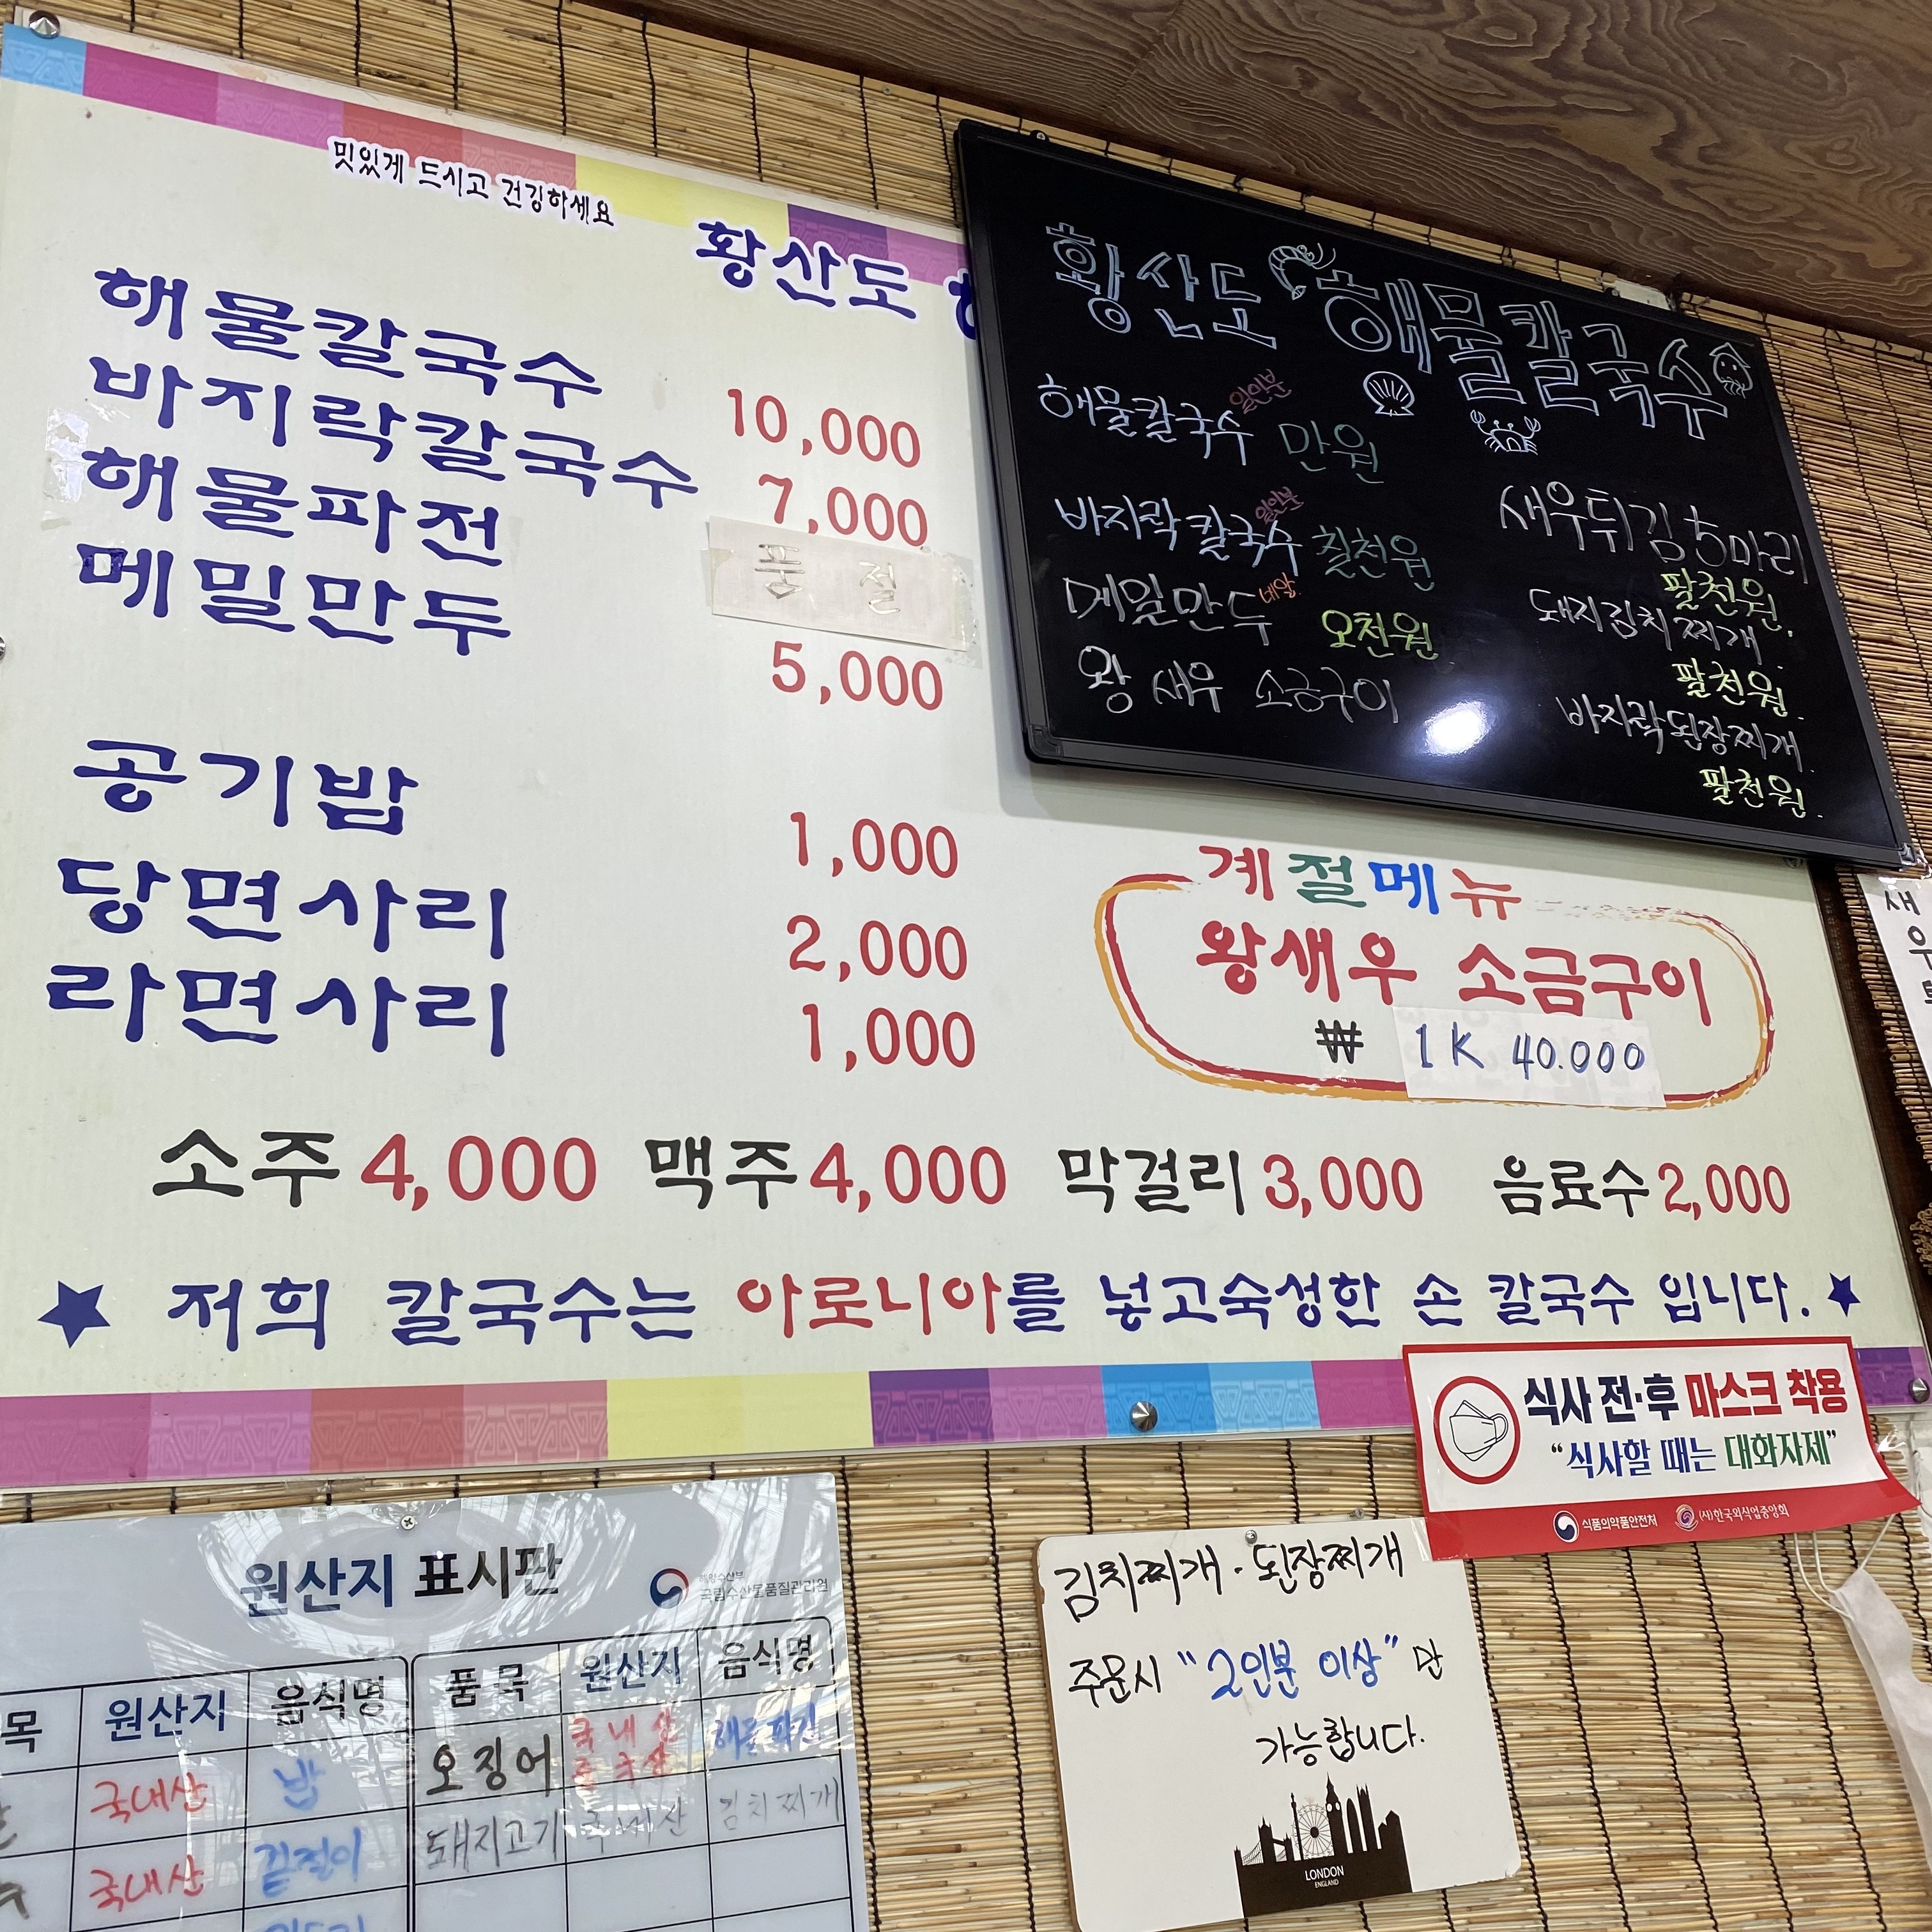 밋있게 드시고 건강하세요
황산도
해물칼국수 10,000
바지락칼국수 7,000
해물파전 품절
메밀만두 5,000
공기밥 1,000
당면사리 2,000
라면사리 1,000
계절메뉴
왕새우 소금구이
₩ 1K 40.000
소주 4,000 맥주 4,000 막걸리 3,000 음료수 2,000
★ 저희 칼국수는 아로니아를 넣고숙성한 손 칼국수 입니다. ★
황산도 해물칼국수
해물칼국수 일인분 만원
바지락칼국수 일인분 칠천원
메밀만두 네알 오천원
왕 새우 소금구이
새우튀김 5마리
팔천원.
돼지김치찌개.
팔천원.
바지락된장찌개
팔천원.
새
우
식사 전·후 마스크 착용
“식사할 때는 대화자제”
식품의약품안전처 (사)한국외식업중앙회
원산지 표시판
해양수산부
국립수산물품질관리원
목 원산지 음식명 품목 원산지 음식명
국내산 밥 오징어 국내산 중국산 해물파전
국내산 겉절이 돼지고기 국내산 김치찌개
김치찌개·된장찌개
주문시 "2인분 이상" 만
가능합니다.
LONDON
ENGLAND